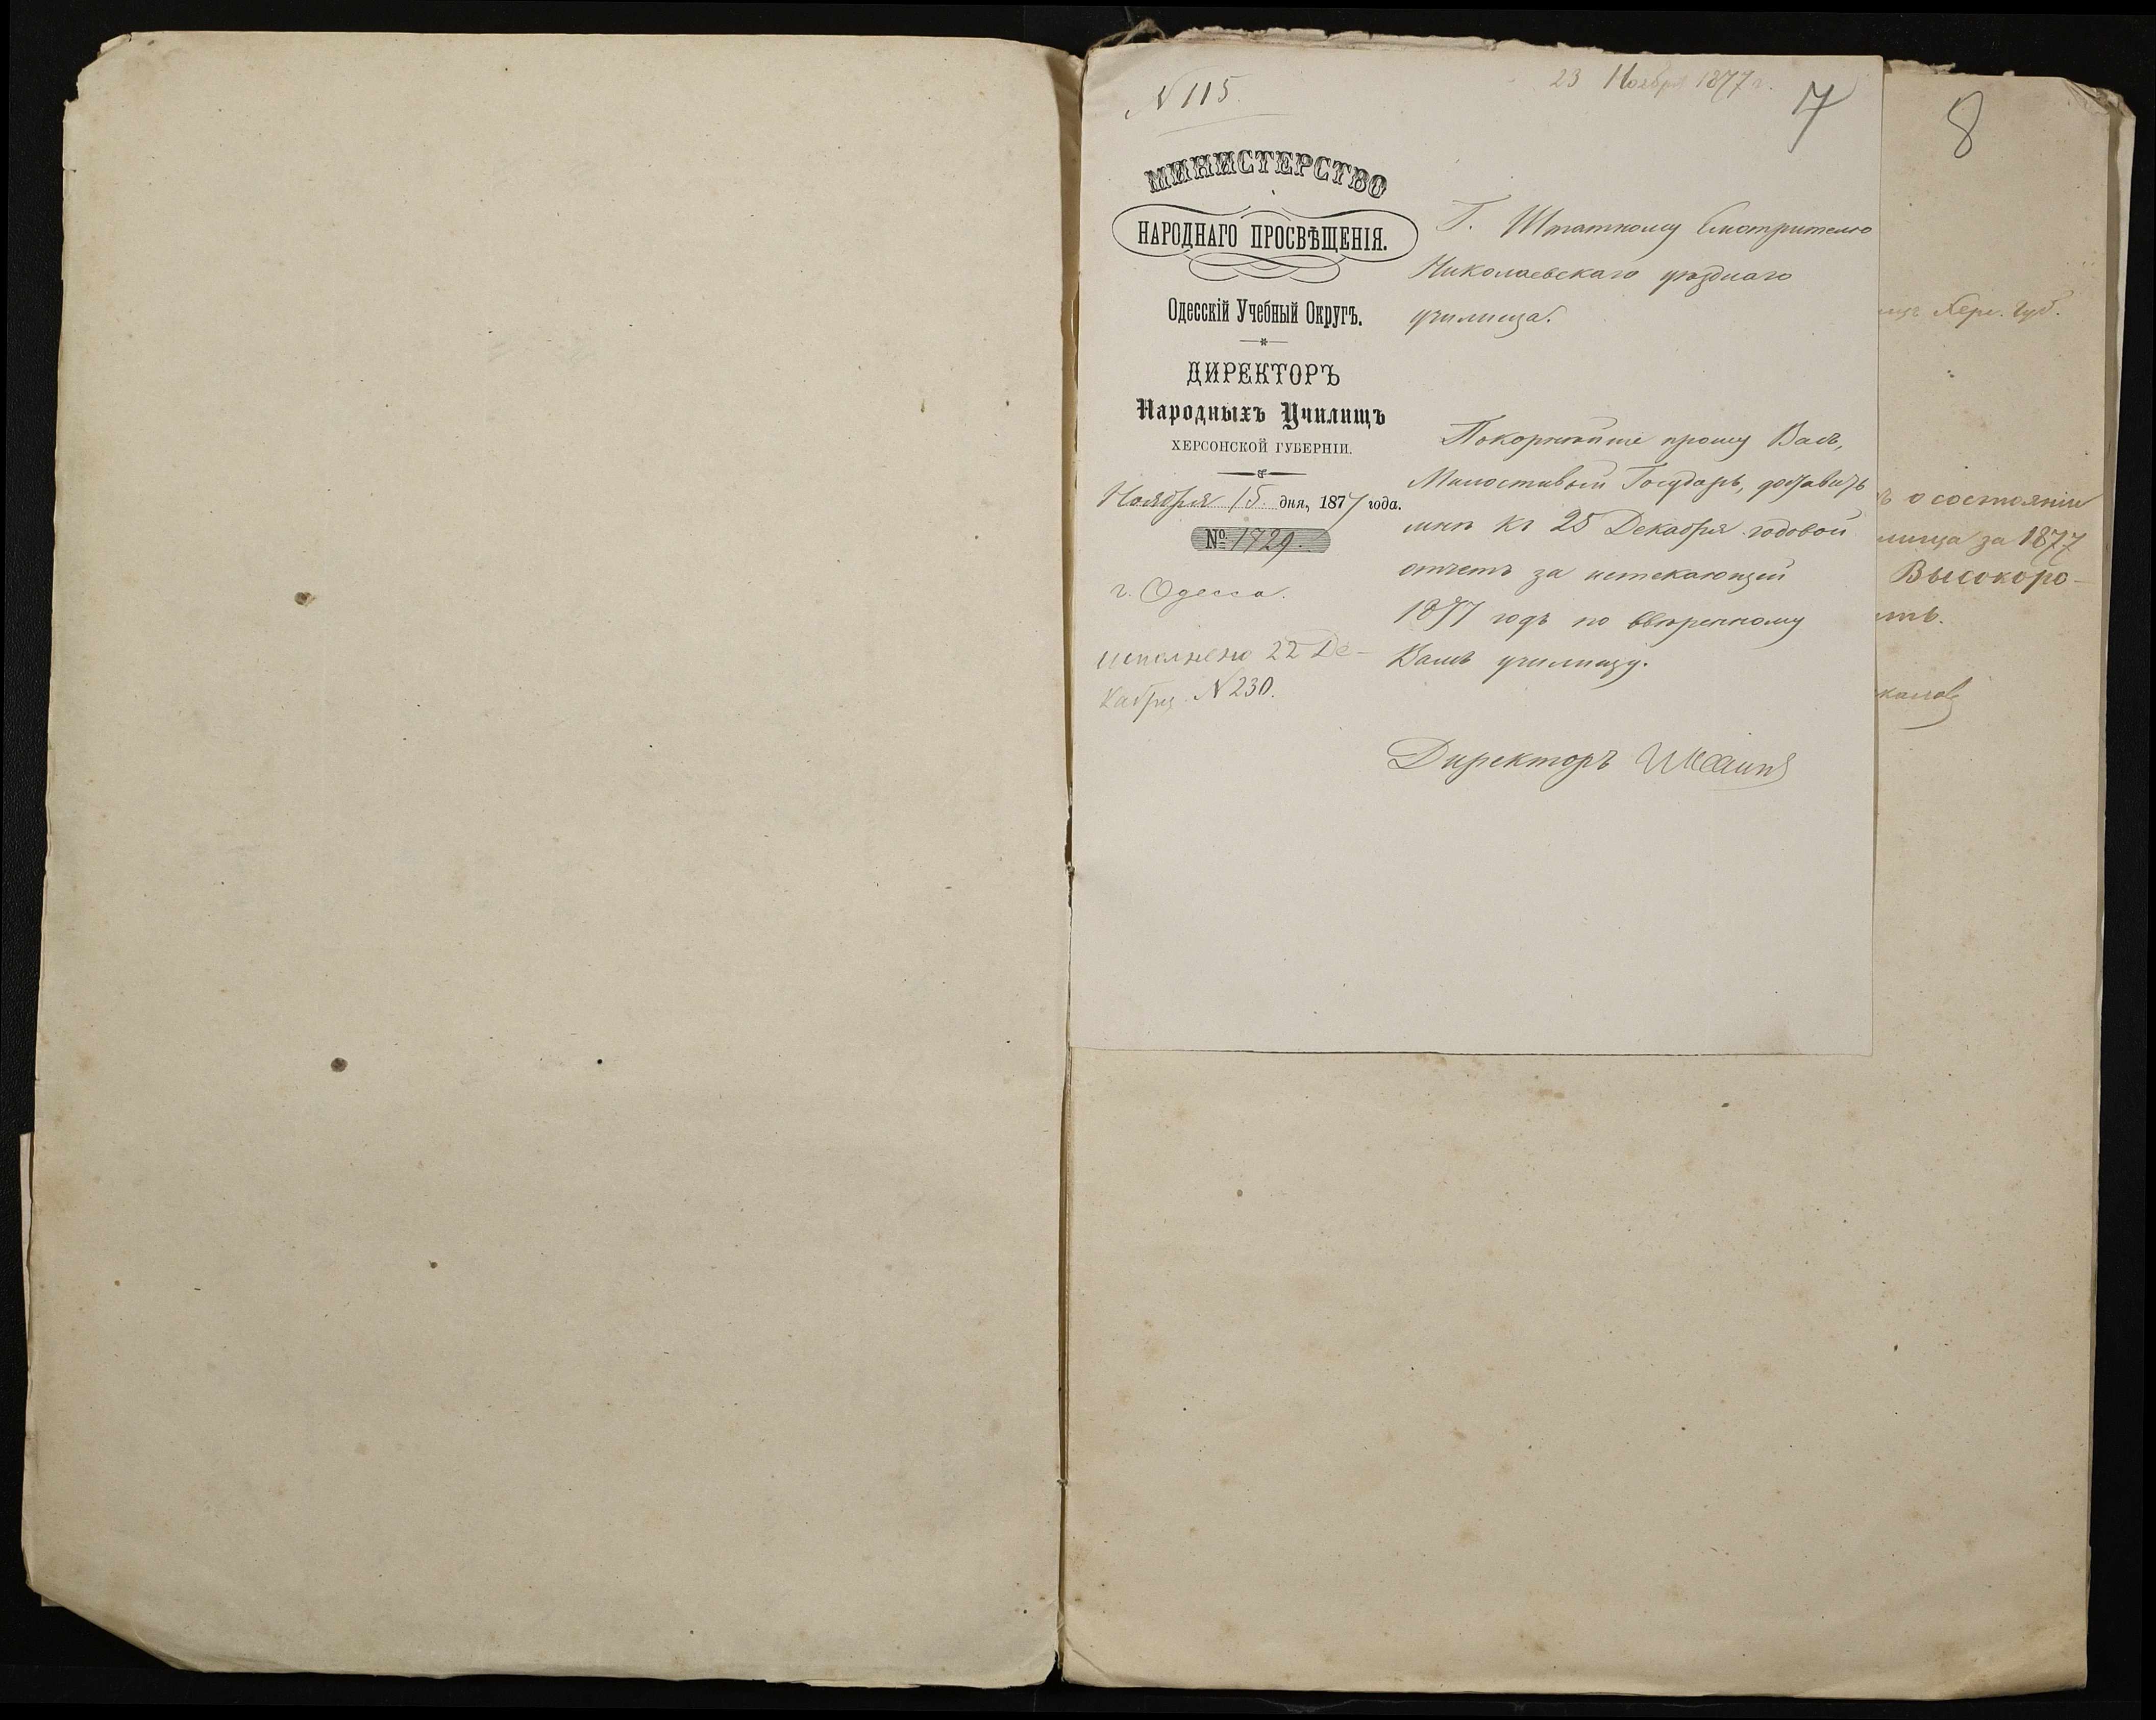 N 115.
23 Ноября 1877 г.
7
МИНИСТЕРСТВО
НАРОДНАГО ПРОСВѢЩЕНІЯ.
Одесскій Учебный Округъ.
ДИРЕКТОРЪ
Народныхъ Училищъ
ХЕРСОНСКОЙ ГУБЕРНІИ.
Ноября 15 дня, 1877 года.
№ 1729.
г. Одесса.
исполнено 22 Де-
кабря N 230.
Г. Штатному Смотрителю
Николаевскаго уѣзднаго
училища.
Покорнѣйше прошу Васъ,
Милостивый Государь, доставить
мнѣ къ 25 Декабря годовой
отчетъ за истекающій
1877 годъ по ввѣренному
Вамъ училищу.
Директоръ
8
Хер. Губ.
о состояніи
лища за 1877
Высокоро-